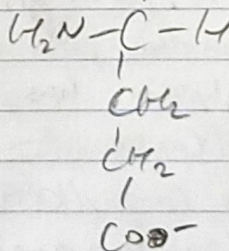 H₂N-C-H
CH₂
CH₂
COO⁻